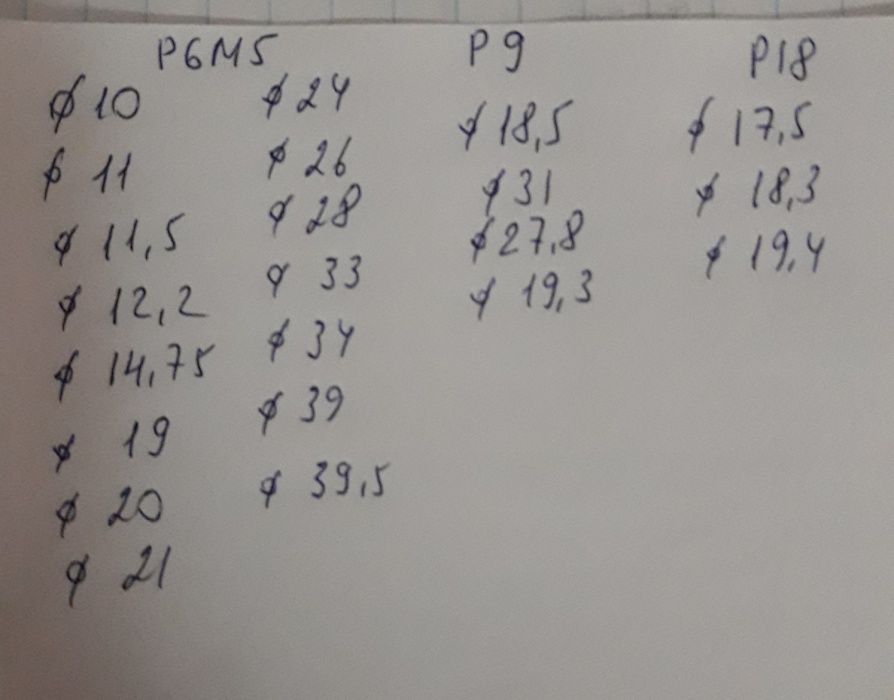 Р6М5
ϕ 10
ϕ 11
ϕ 11,5
ϕ 12,2
ϕ 14,75
ϕ 19
ϕ 20
ϕ 21
ϕ 24
ϕ 26
ϕ 28
ϕ 33
ϕ 34
ϕ 39
ϕ 39,5
Р9
ϕ 18,5
ϕ 31
ϕ 27,8
ϕ 19,3
Р18
ϕ 17,5
ϕ 18,3
ϕ 19,4